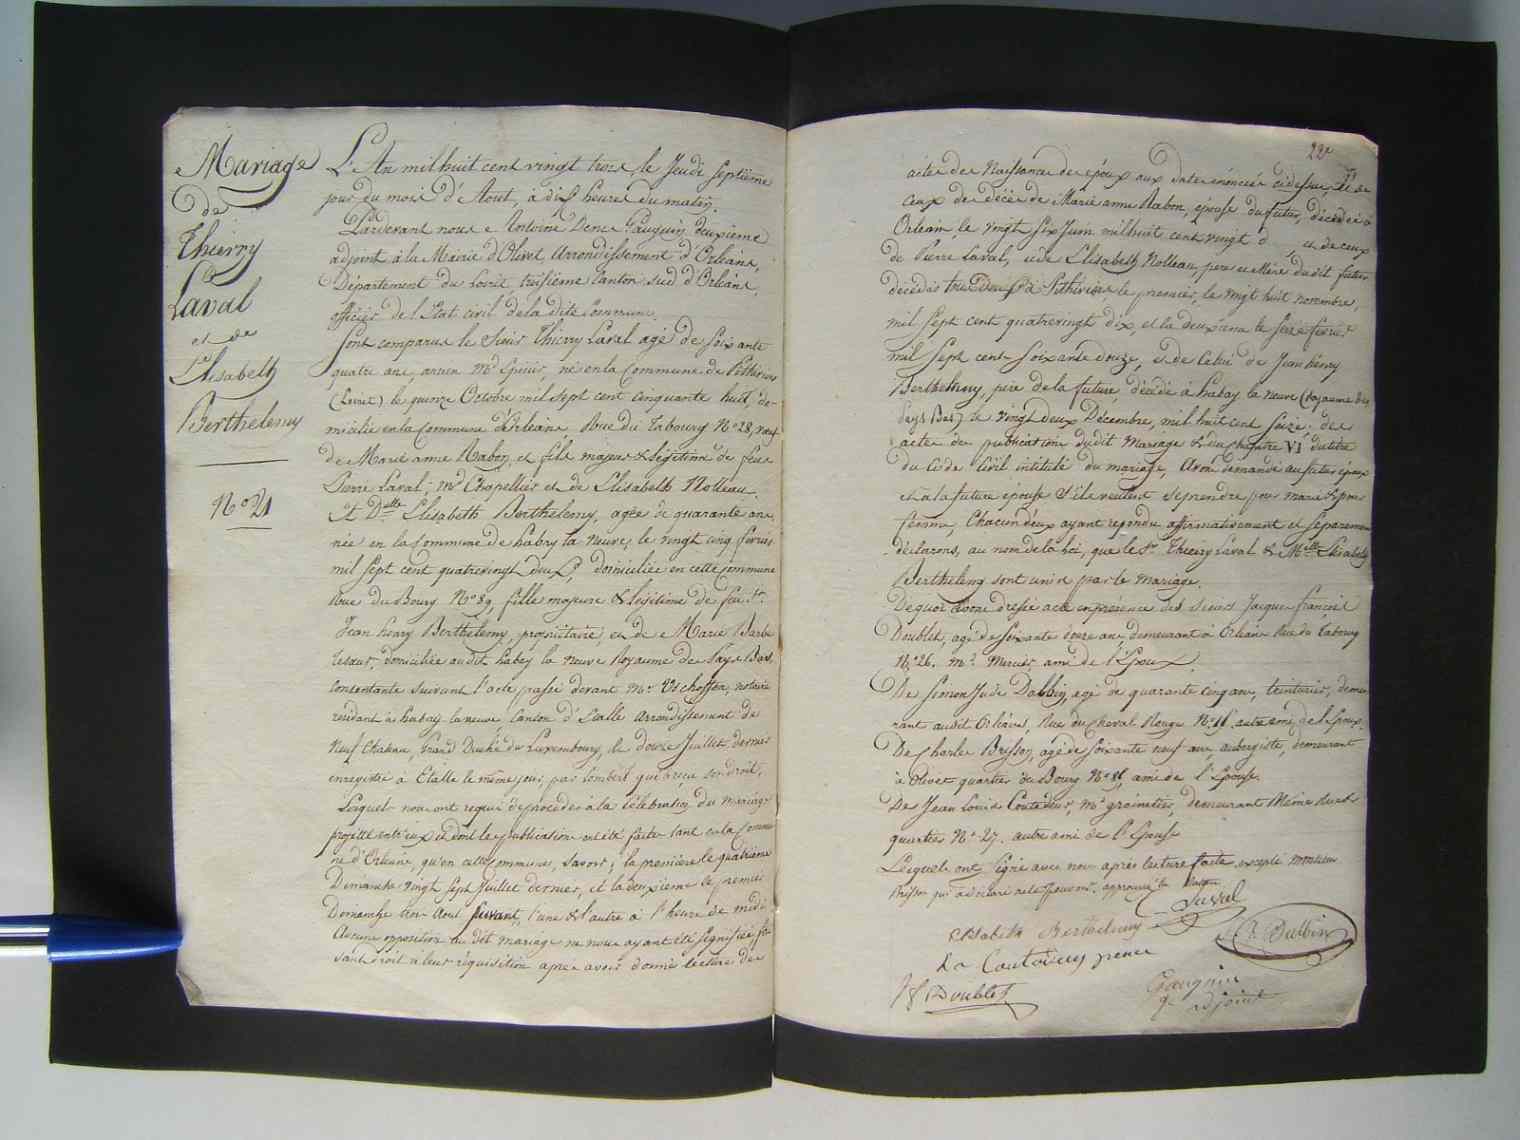 Mariage
de
Thierry
Laval
et de
Elisabeth
Berthelemy
N° 21
L'An mil huit cent vingt trois le Jeudi Septième
jour du mois d'Aout, à dix heures du matin.
Pardevant nous Antoine Denis Gauguin deuxieme
adjoint à la Mairie d'Olivet Arrondissement d'Orléans,
Département du Loiret, troisieme Canton sud d'Orléans,
officier de l'Etat civil de la dite Commune.
Sont comparus le Sieur Thierry Laval agé de soixante
quatre ans, ancien Md Epicier, né en la Commune de Pithiviers
(Loiret) le quinze Octobre mil sept cent cinquante huit, do-
micilié en la Commune d'Orléans Rue du Tabourg N° 28, veuf
de Marie anne Rabon, et fils majeur & légitime de feus
Pierre Laval, Md Chapellier et de Elisabeth Nolleau.
Et Delle Elisabeth Berthelemy, agée de quarante ans,
née en la Commune de habay la Neuve, le vingt cinq fevrier
mil sept cent quatrevingt deux, domiciliée en cette commune
Rue du Bourg N° 89, fille majeure & légitime de feu Sr.
Jean henry Berthelemy, propriétaire, et de Marie Barbe
domiciliée audit habay la neuve Royaume des Pays Bas,
Consentante suivant l'acte passé devant Mr notaire
résidant à habay la neuve Canton d'Etalle arrondissement de
Neuf Chateau, Grand Duché de Luxembourg, le douze Juillet dernier
enregistré à Etalle le même jour, par Lambert qui a reçu son droit,
Lesquels nous ont requis de procéder à la célébration du mariage
projetté entr'eux et dont les publications ont été faites tant en la Commu-
ne d'Orléans, qu'en cette Commune, savoir; la première le quatrième
Dimanche vingt sept Juillet dernier, et la deuxieme le premier
Dimanche trois Aout suivant, l'une & l'autre à l'heure de midi
Aucune opposition au dit mariage ne nous ayant été signifiée, fai-
sant droit à leur réquisition après avoir donné lecture des
22e
actes de Naissance des époux aux dates énoncées cidessus, et de
ceux de décès de Marie anne Rabon, épouse du futur, décédée à
Orléans, le vingt six Juin mil huit cent vingt et de ceux
de Pierre Laval, et de Elisabeth Nolleau, pere et Mère dudit futur
décédés tous deux à Pithiviers, le premier, le vingt huit novembre,
mil sept cent quatrevingt dix, et la deuxieme le seize fevrier
mil sept cent soixante douze, et de Celui de Jean henry
Berthelemy, père de la future, décédé à habay la neuve (Royaume des
Pays Bas) le vingt deux Décembre, mil huit cent seize. des
actes de publications dudit Mariage & du chapitre VI du titre
du Code Civil intitulé du mariage, Avons demandé au futur époux
et à la future épouse s'ils veulent se prendre pour mari & pour
femme, Chacun d'eux ayant répondu affirmativement et séparement
déclarons, au nom de la loi, que le Sr. Thierry Laval & Melle Elisabeth
Berthelemy sont unis par le mariage.
De quoi avons dressé acte en présence des sieurs Jacques françois
Doublet, agé de soixante douze ans, demeurant à Orléans Rue du Tabourg
N° 26. Md. Mercier ami de l'Epoux.
De Simon Jude Dalbin, agé de quarante cinq ans, teinturier, demeu-
rant audit Orléans, Rue du Cheval Rouge N° 16 autre ami de l'Epoux.
De Charles Brisson, agé de soixante neuf ans, aubergiste, demeurant
à Olivet quartier du Bourg N° ami de l'Epouse.
De Jean Louis Md grainetier, demeurant Même
quartier N° 27. autre ami de l'Epouse
Lesquels ont signé avec nous après lecture faite excepté monsieur
Brisson qui a déclaré ne le pouvoir. approuvé
Laval
elisabeth Berthelemy
S. Dalbin
Doublet
Gauguin
adjoint